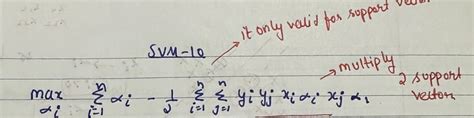 it only valid for support vector
SVM-10
multiply
2 support
vector
max αi Σ i=1 n αi - 1/2 Σ i=1 n Σ j=1 n yi yj xi αi xj αj